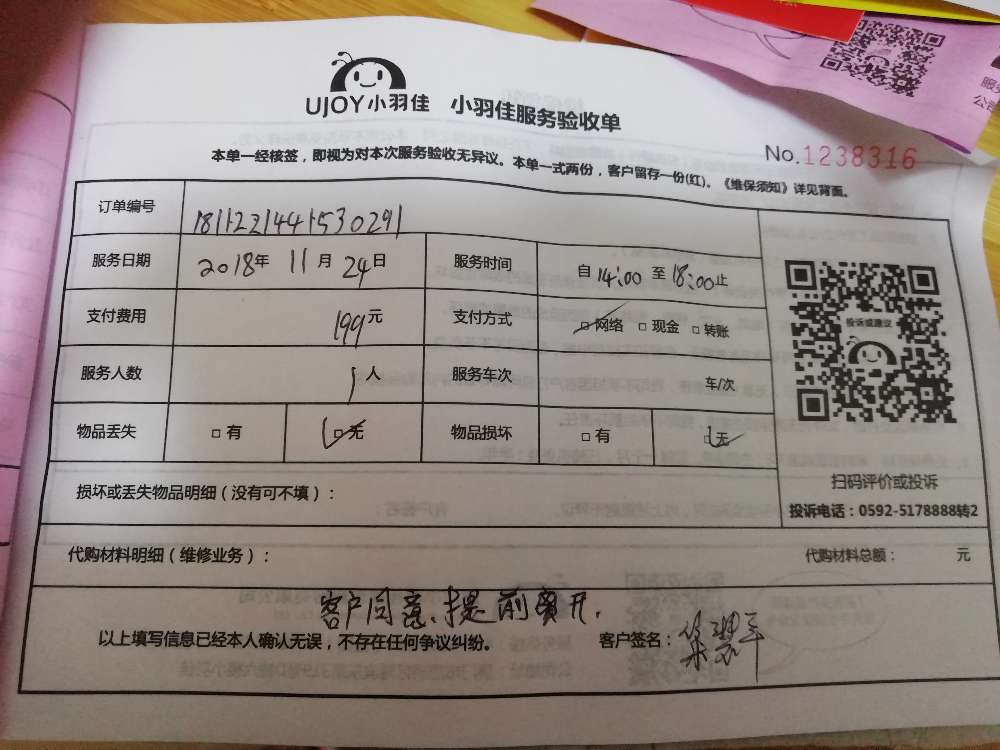 UJOY小羽佳 小羽佳服务验收单
No.1238316
本单一经核签，即视为对本次服务验收无异议。本单一式两份，客户留存一份(红)。《维保须知》详见背面。
订单编号 1811221441530291
服务日期 2018年 11月 24日 服务时间 自14:00 至18:00止
支付费用 199元 支付方式 □网络 □现金 □转账
投诉或建议
服务人数 1人 服务车次 车/次
物品丢失 □有 □无 物品损坏 □有 □无
扫码评价或投诉
投诉电话：0592-5178888转2
损坏或丢失物品明细（没有可不填）：
代购材料明细（维修业务）： 代购材料总额： 元
客户同意、提前离开.
以上填写信息已经本人确认无误，不存在任何争议纠纷。 客户签名：